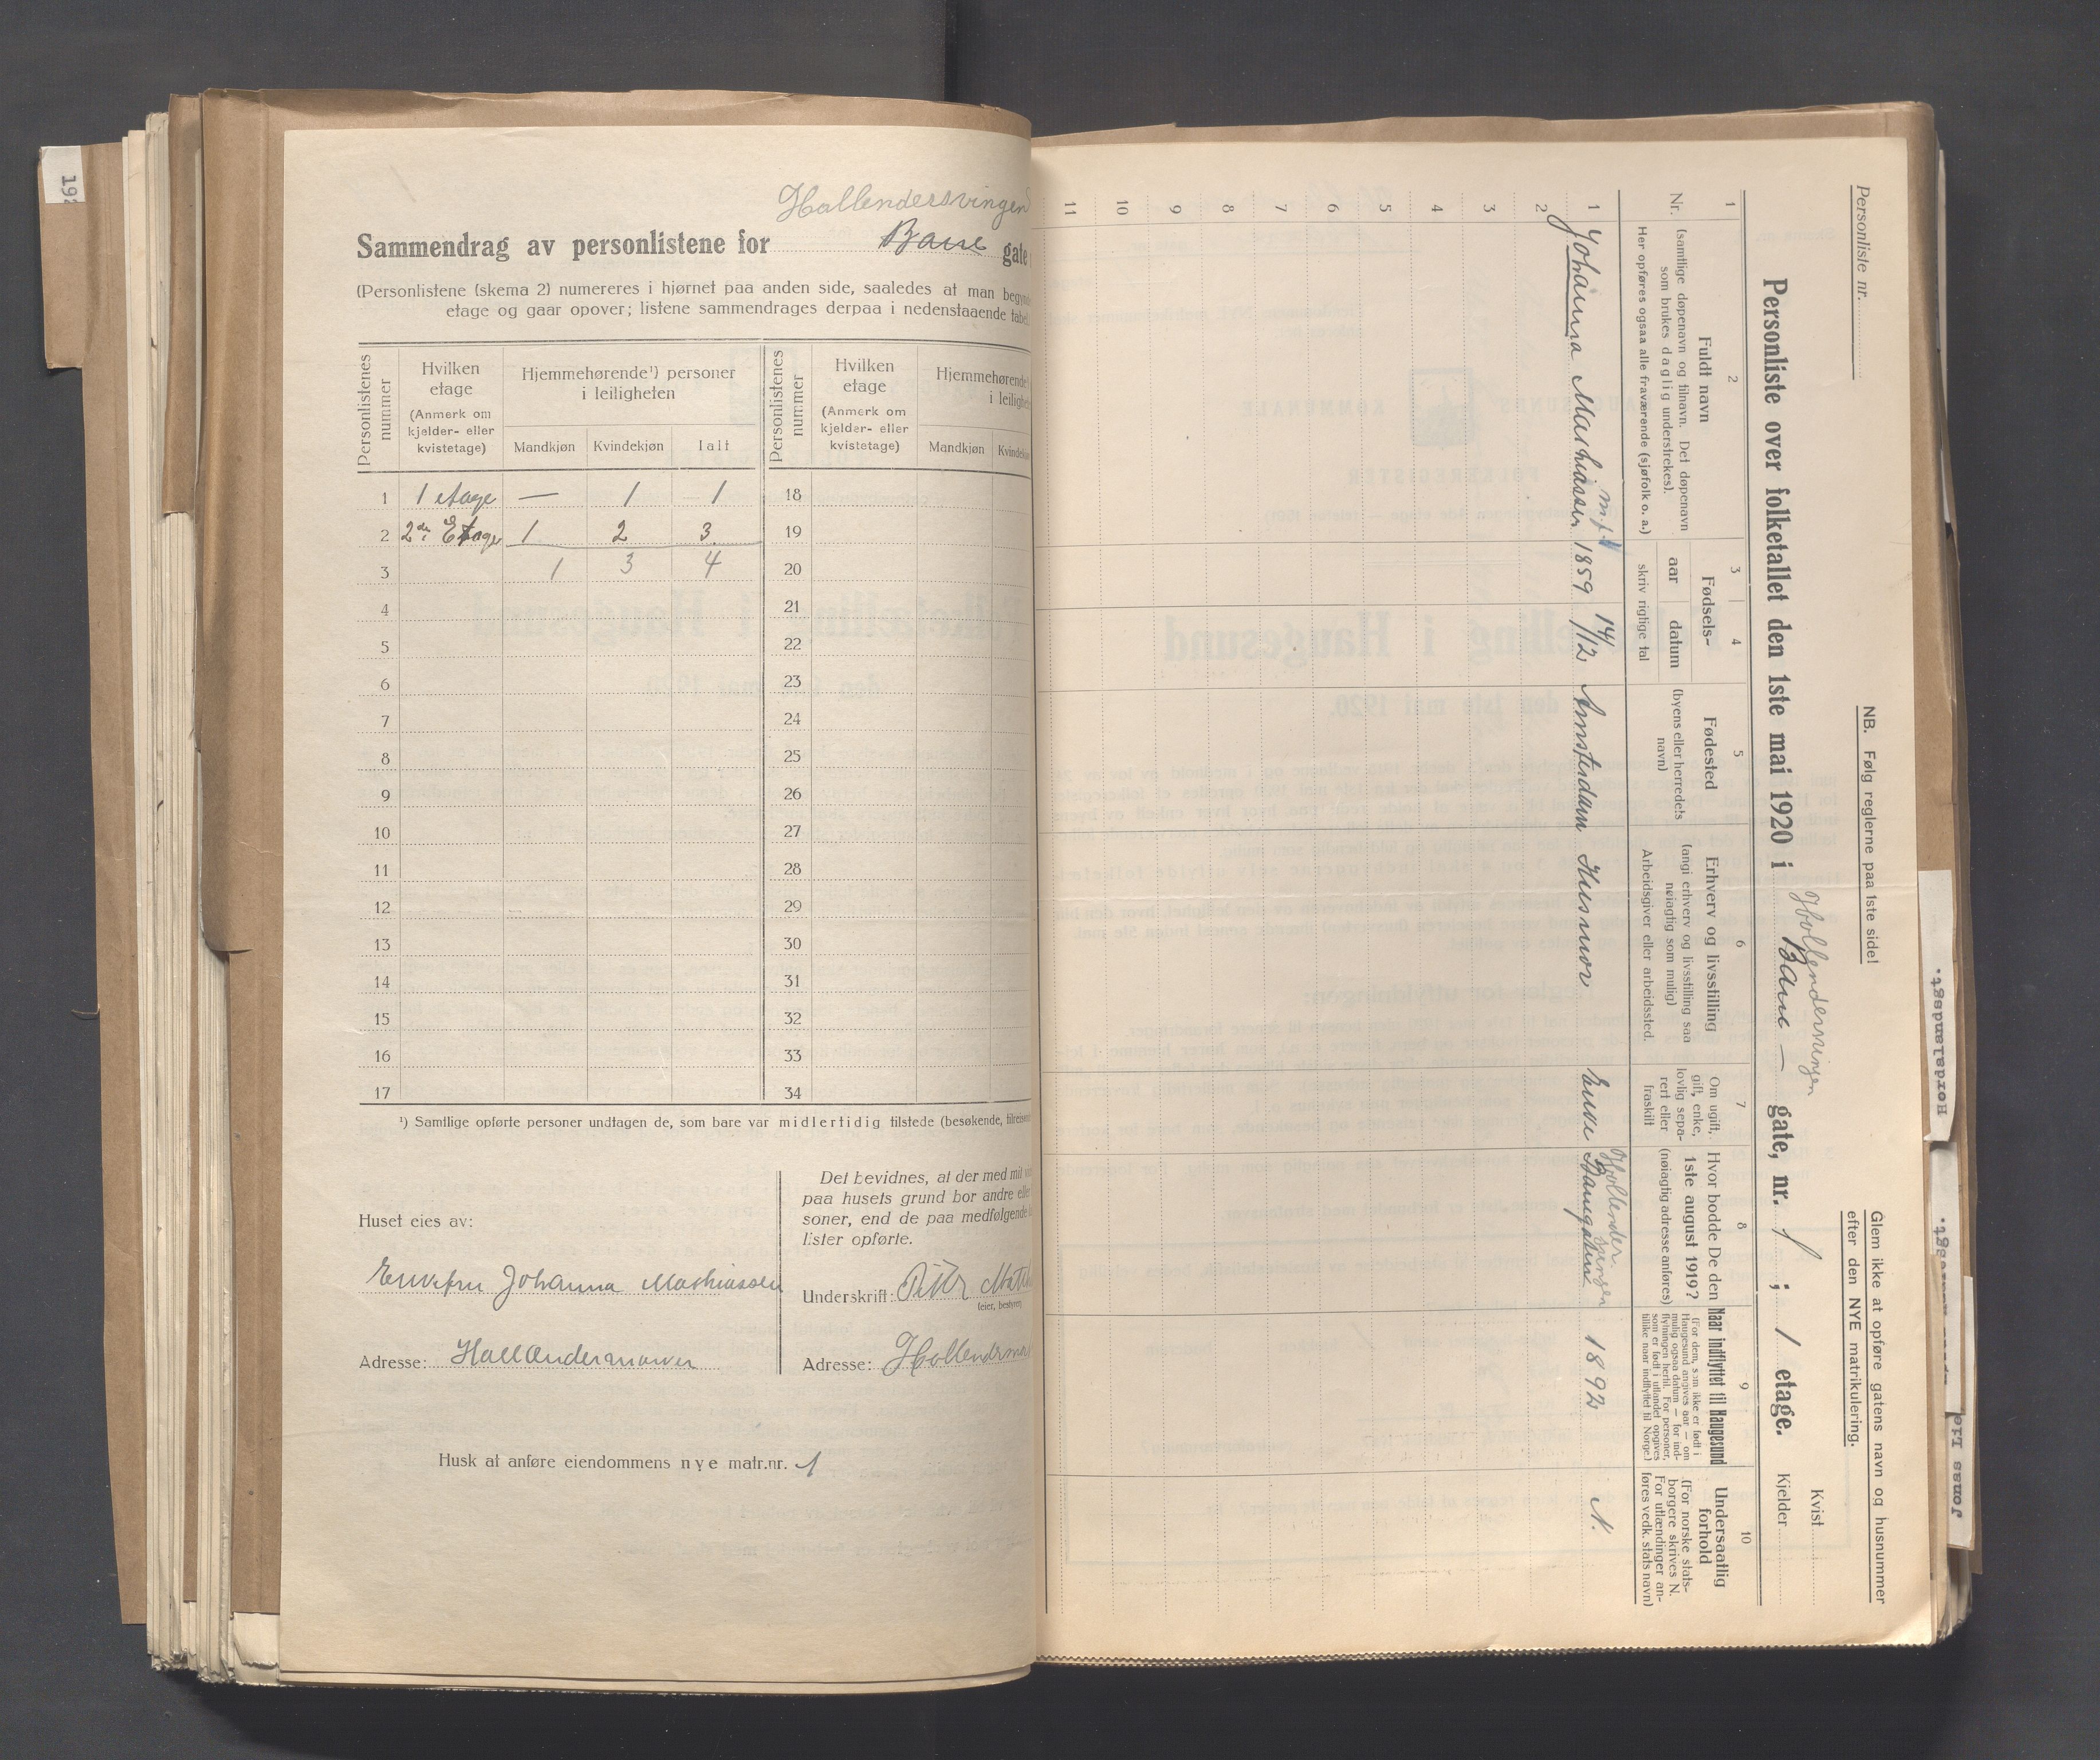 192
Hollendersvingen
Sammendrag av personlistene for Bane gate
(Personlistene (skema 2) numereres i hjørnet paa anden side, saaledes at man
etage og gaar opover; listene sammendrages derpaa i nedenstaaende
Personlistenes nummer
Hvilken etage
(Anmerk om kjelder- eller kvistetage)
Hjemmehørende¹) personer i leiligheten
Mandkjøn Kvindekjøn Ialt
Personlistenes nummer
Hvilken etage
(Anmerk om kjelder- eller kvistetage)
Hjemmehørende
Mandkjøn
1 1 etage — 1 1 18
2 2den Etage 1 2 3 19
3 1 3 4 20
4 21
5 22
6 23
7 24
8 25
9 26
10 27
11 28
12 29
13 30
14 31
15 32
16 33
17 34
¹) Samtlige opførte personer undtagen de, som bare var midlertidig tilstede (besøkende,
Huset eies av:
Enkefru Johanna Mathiassen
Adresse: Hollendermarken
Det bevidnes, at der med mit
paa husets grund bor andre
soner, end de paa medfølgende
lister opførte.
Underskrift:
(eier, bestyrer)
Adresse:
Husk at anføre eiendommens nye matr.nr. 1
Personliste nr.
NB. Følg reglerne paa 1ste side!
Glem ikke at opføre gatens navn og husnummer
efter den NYE matrikulering.
Hollendersvingen
Personliste over folketallet den 1ste mai 1920 i Bane — gate, nr. 1 ; 1 etage.
Kvist
Kjelder
1 2 3 4 5 6 7 8 9 10
Nr.
Fuldt navn
(samtlige døpenavn og tilnavn. Det døpenavn
som brukes daglig understrekes).
Her opføres ogsaa alle fraværende (sjøfolk o. a.)
Fødsels-
aar datum
skriv rigtige tal
Fødested
(byens eller herredets
navn)
Erhverv og livsstilling
(angi erhverv og livsstilling saa
nøiagtig som mulig)
Arbeidsgiver eller arbeidssted.
Om ugift,
gift, enke,
lovlig sepa-
rert eller
fraskilt
Hvor bodde De den
1ste august 1919?
(nøiagtig adresse anføres)
Naar indflyttet til Haugesund
(For dem, som ikke er født i
Haugesund angives aar — om
mulig ogsaa datum — for ind-
flytningen hertil. For personer,
som er født i utlandet opgives
tillike naar indflyttet til Norge.)
Undersaatlig
forhold
(For norske stats-
borgere skrives N.
For utlændinger an-
føres vedk. stats navn)
1 Johanna Mathiassen 1859 14/12 Amsterdam Husmor Enke Banegaten 1892 N.
Hollendersvingen
2
3
4
5
6
7
8
9
10
11
Hordalandsgt.